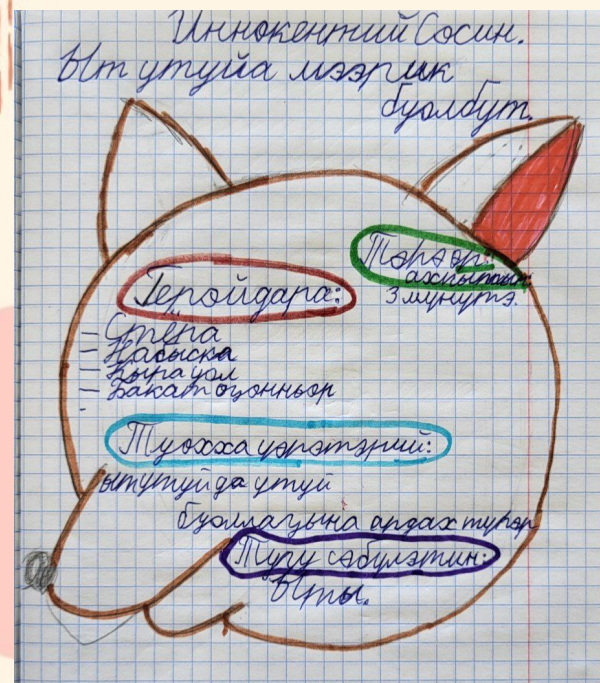 Иннокентий Сосин.
Ыт утуйа мээрик
буолбут.
Тэрээр:
ахпытын
3 мүнүтэ.
Геройдара:
– Стёпа
– Наыска
– Кыра уол
– Бакат оҕонньор
-
Туохха үөрэтэрий:
ытутуйда утуй
буоллаҕына ардах түһэр
Тугу сөбүлэтин:
Ыты.